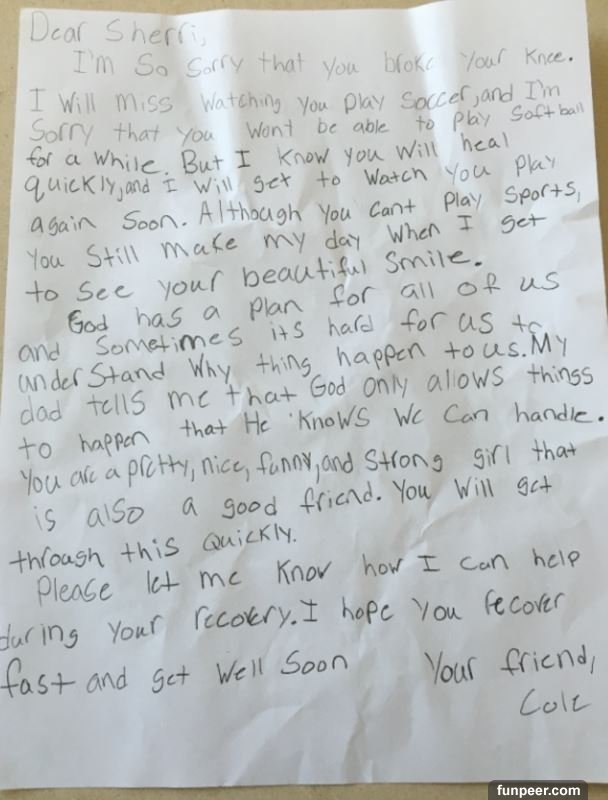 Dear Sherri,
I'm So Sorry that you broke your Knee.
I Will miss Watching You Play Soccer, and I'm
Sorry that you Wont be able to Play Softball
for a while. But I Know you Will heal
quickly, and I Will get to Watch You Play
again Soon. Although You Cant Play Sports,
You Still make my day When I get
to See your beautiful Smile.
God has a Plan for all of us
and Sometimes its hard for us to
understand Why thing happen to us. My
dad tells me that God only allows things
to happen that He Knows We Can handle.
You are a pretty, nice, funny, and Strong girl that
is also a good friend. You Will get
through this Quickly.
Please let me Know how I Can help
during Your recovery. I hope You recover
fast and get Well Soon Your friend,
Cole
funpeer.com